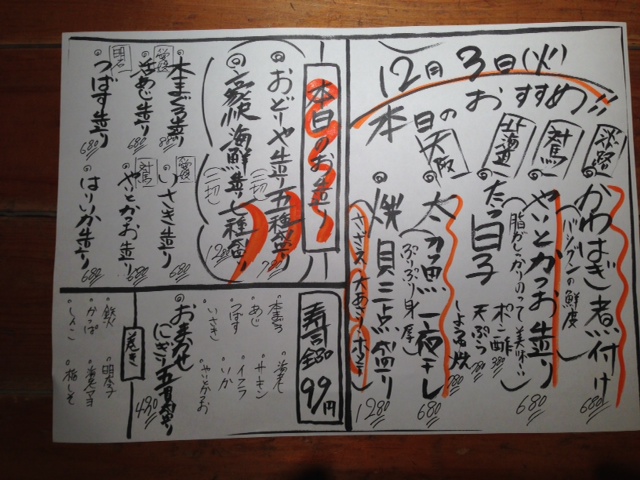 12月3日(火)
本日のおすすめ!!
淡路
かわはぎ煮付け
バツグンの鮮度
680
対馬
やいとかつお造り
脂がとってものって美味い
680
北海道
たつ白子
ポン酢
天ぷら
しょうゆ焼
780
大阪
太刀魚一夜干し
ぷりぷり身厚
680
焼貝三点盛り
1280
本日のお造り
おどりや造り五種盛り
二切
豪快海鮮造り七種盛り
二切
愛媛
本まぐろ造り
活あじ造り
680
明石
つばす造り
680
愛媛
いさき造り
680
対馬
やいとかつお造り
680
はりいか造り
680
寿司全品99円
本まぐろ
あじ
つばす
いさき
サーモン
イクラ
いか
やいとかつお
お まかせ
にぎり五貫盛り
480
巻き
鉄火
かっぱ
しんこ
明太子
海老マヨ
梅しそ